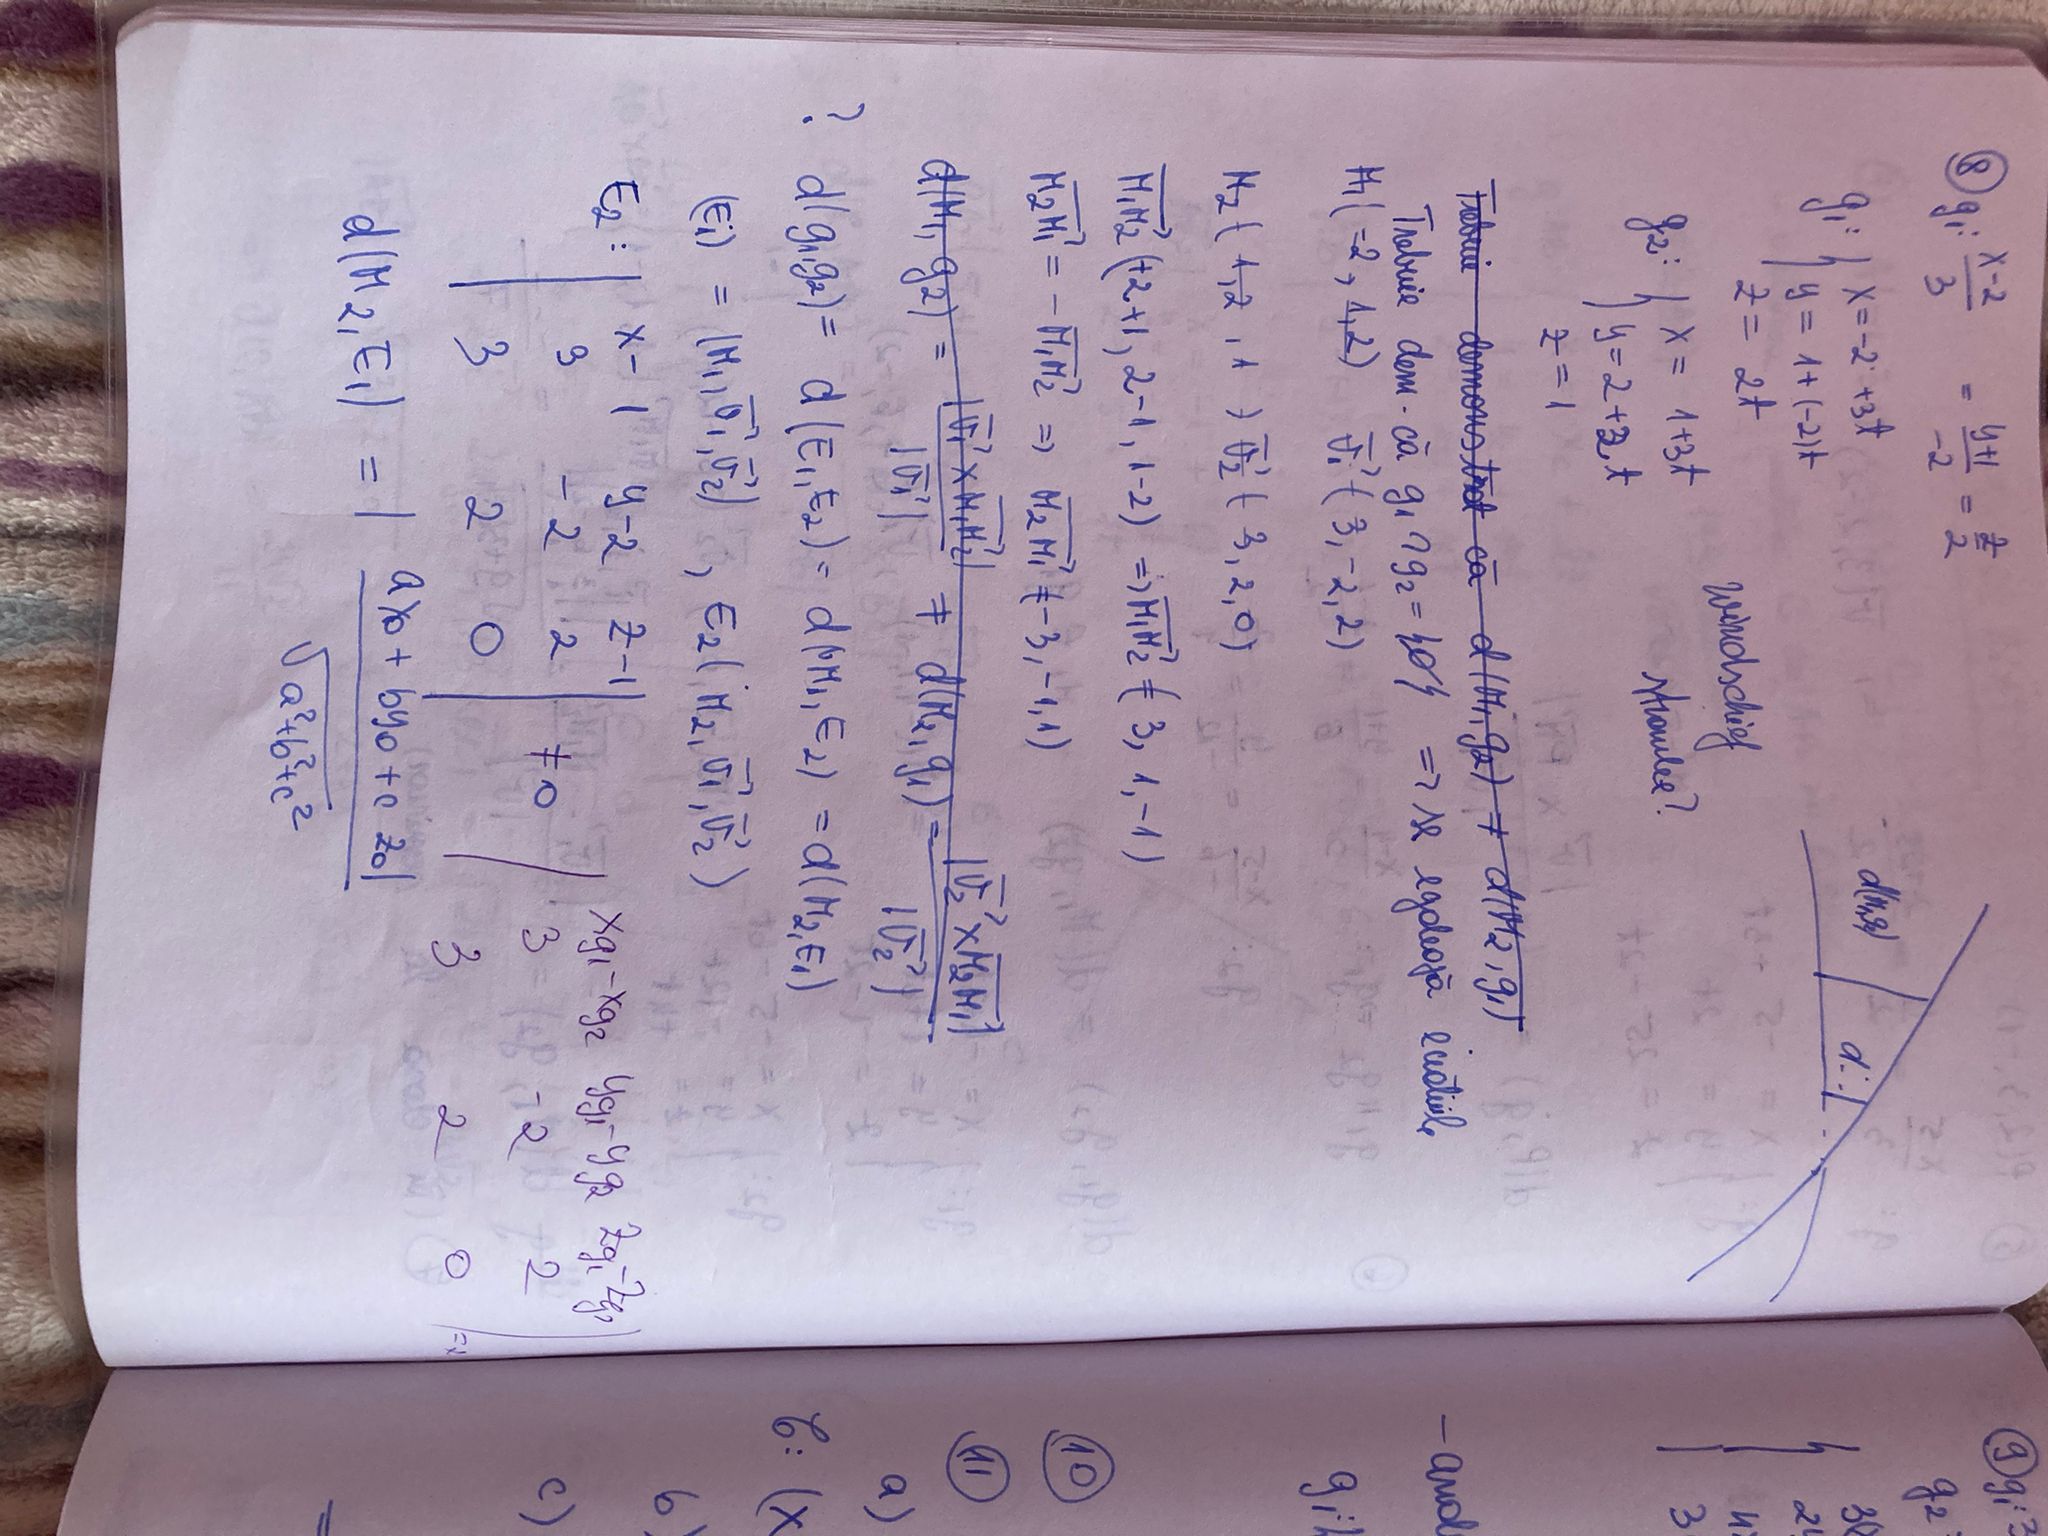 ⑧ g₁: x-2/3 = y+1/-2 = z/2
g₁: { x = -2 + 3t
y = 1+(-2)t
z = 2t
g₂: { x = 1+3t
y = 2+2t
z = 1
d(M₁,g₂) d...
windschief
strambe?
Trebuie demonstrat că d(M₁,g₂) ≠ d(M₂,g₁)
Trebuie dem. că g₁ ∩ g₂ = {∅} => se egalează ecuațiile
M₁(-2, 1,2) v₁⃗(3,-2,2)
M₂(1,2,1) v₂⃗(3,2,0)
M₁M₂⃗(+2+1, 2-1, 1-2) => M₁M₂⃗ = (3, 1,-1)
M₂M₁⃗ = -M₁M₂⃗ => M₂M₁⃗ = (-3,-1,1)
d(M₁, g₂) = |v₁⃗ x M₁M₂⃗|/|v₁⃗| ≠ d(M₂,g₁) = |v₂⃗ x M₂M₁⃗|/|v₂⃗|
? d(g₁,g₂) = d(E₁,E₂) = d(M₁,E₂) = d(M₂,E₁)
(E₁) = (M₁, v₁⃗, v₂⃗) , E₂(M₂, v₁⃗, v₂⃗)
E₂: | x-1 y-2 z-1 |
3 -2 2 ≠ 0
3 2 0
| xg₁-xg₂ yg₁-yg₂ zg₁-zg₂ |
3 -2 2
3 2 0 =
d(M₂,E₁) = | ax₀ + by₀ + c z₀|/√a²+b²+c²
⑨ g₁: 3
g₂
3(
2y
4
3
g₁:
⑩
⑪
a)
b: (x
b)
c)
=